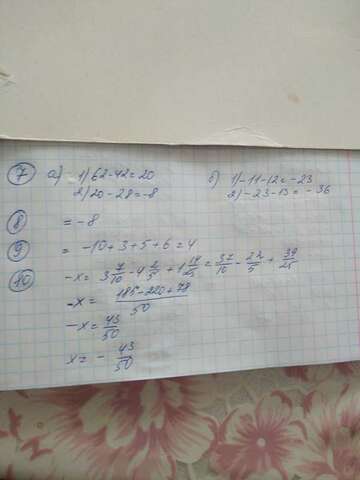 7 а) 1) 62-42=20 б) 1) -11-12=-23
2) 20-28=-8 2) -23-13=-36
8 = -8
9 = -10+3+5+6=4
10 -x = 3 7/10 - 4 2/5 + 1 14/25 = 37/10 - 22/5 + 39/25
-x = 185-220+78/50
-x = 43/50
x = - 43/50